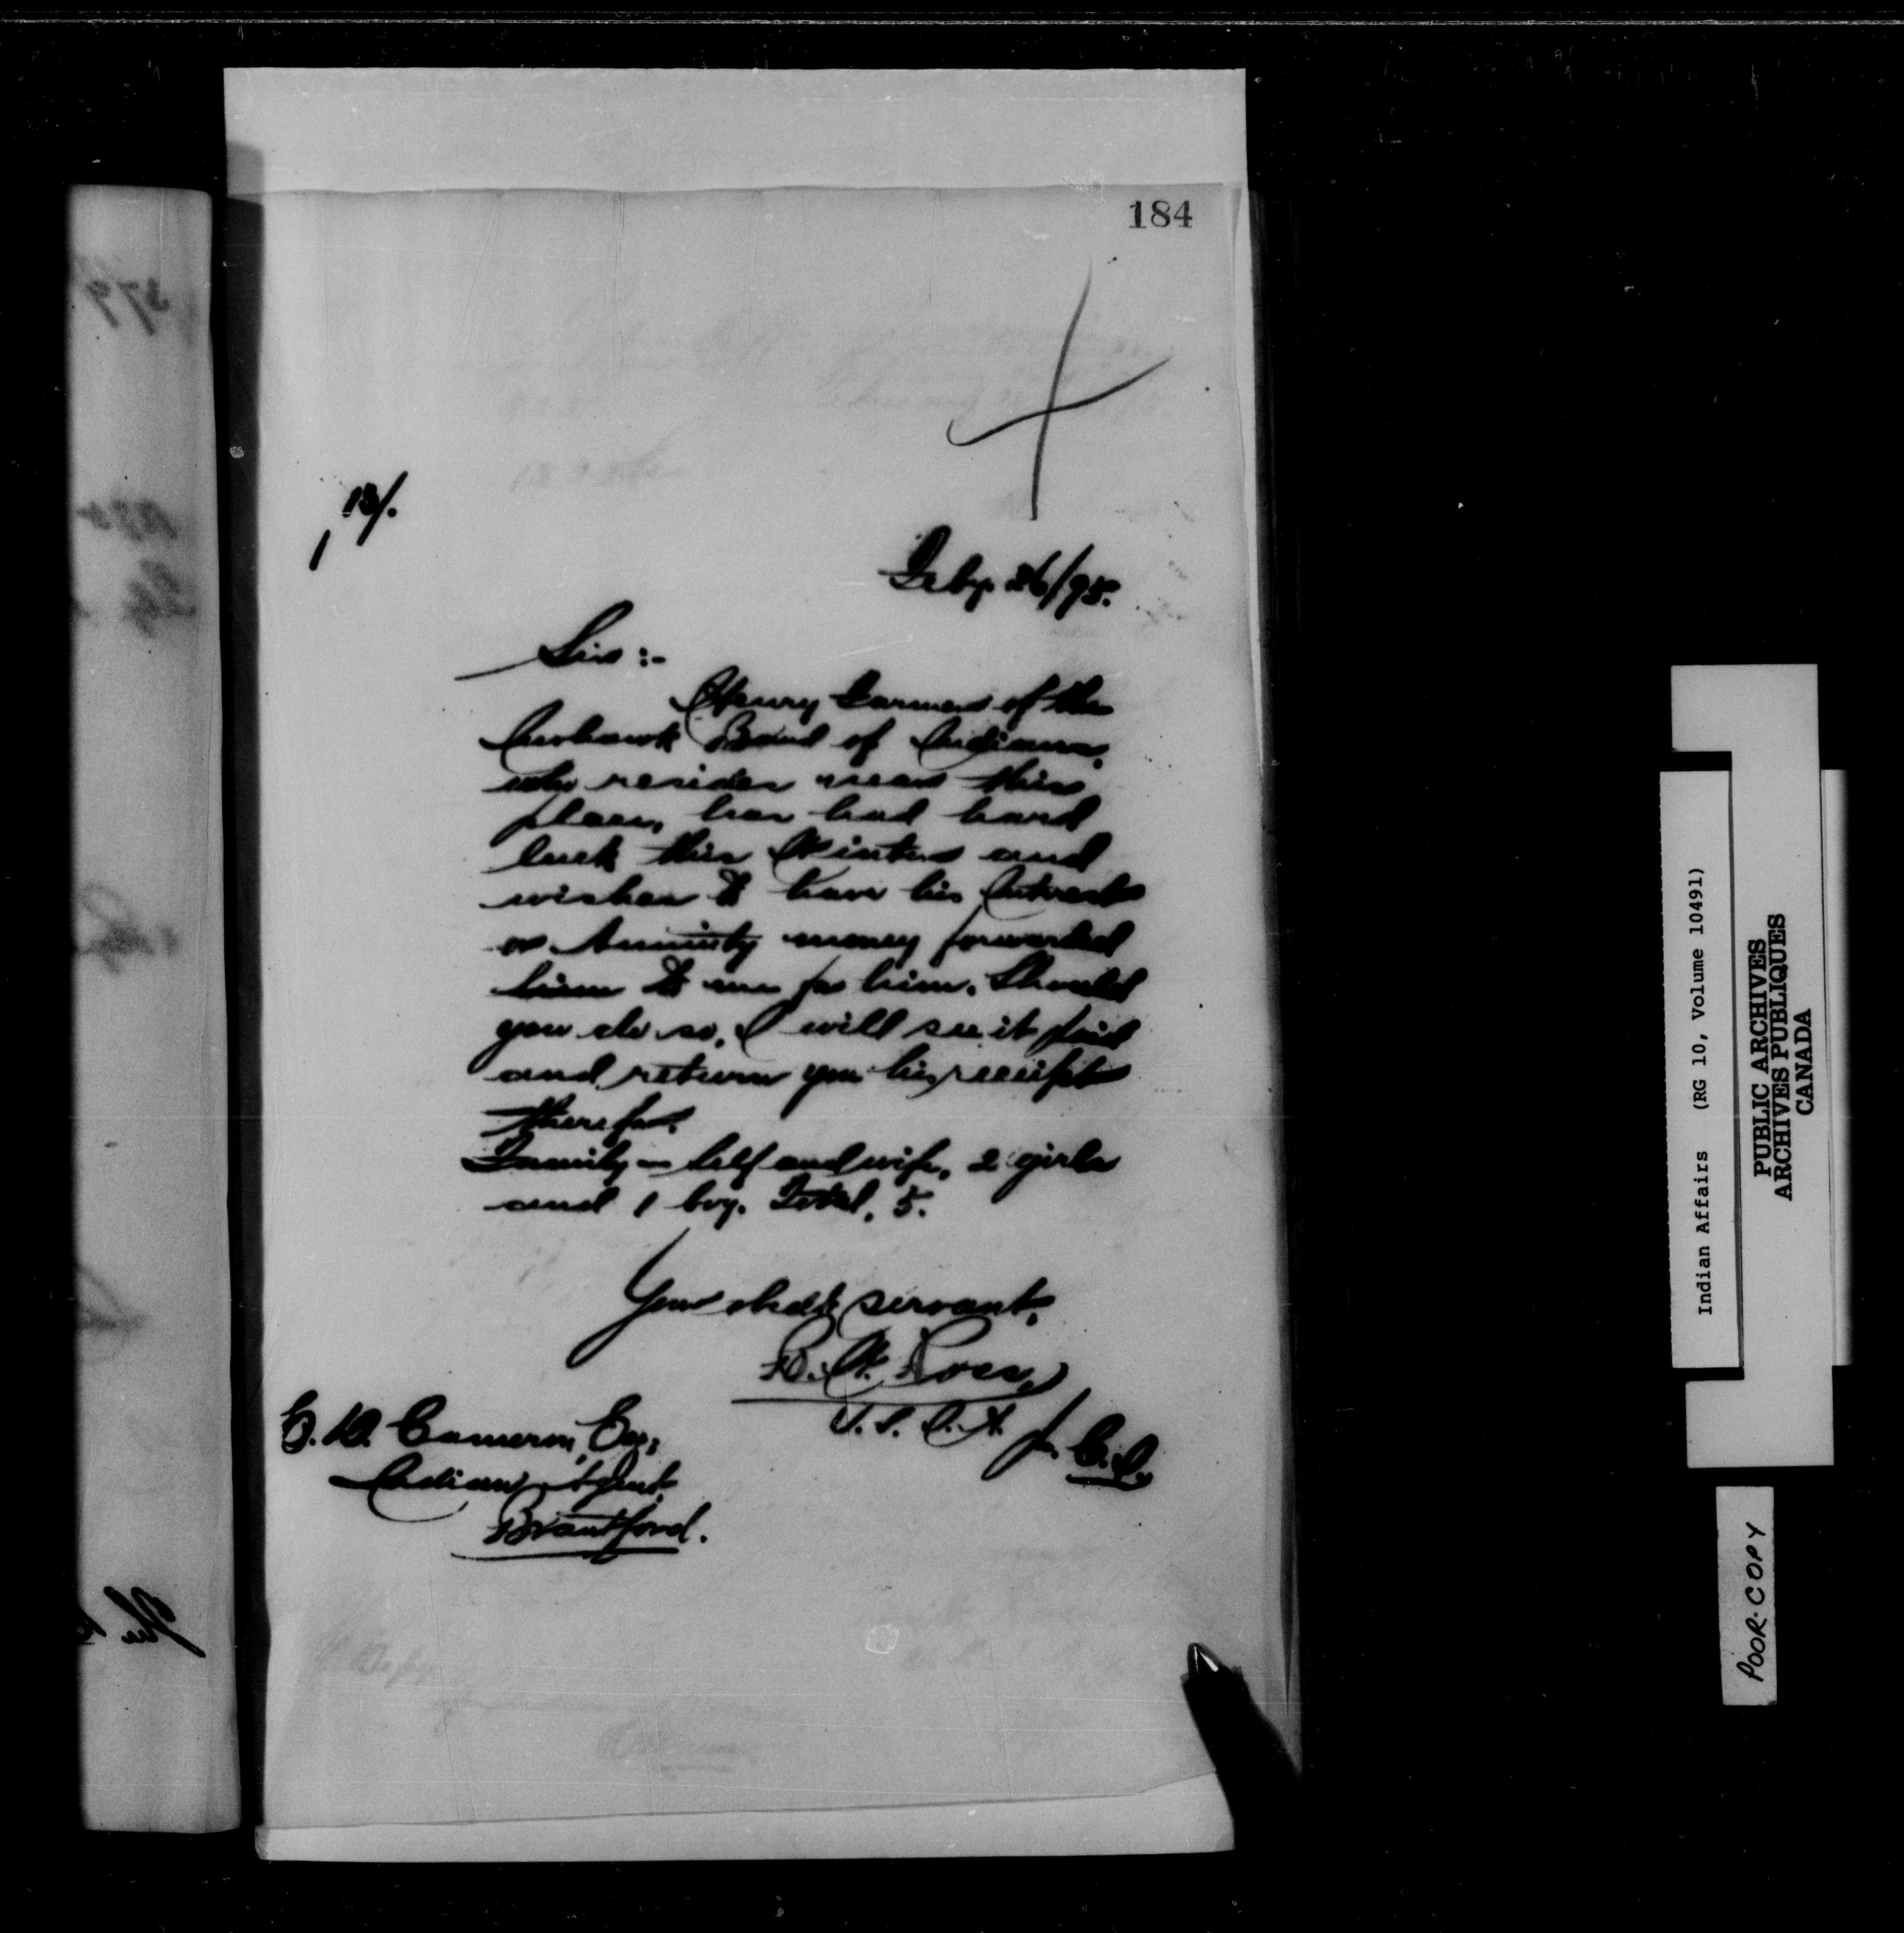 184
13/.
Feby. 26/95.
Sir :-
Henry Farmer of the
Mohawk Band of Indians,
who resides near this
place, has had hard
luck this Winter and
wishes to have his Interest
or Annuity money forwarded
him to me for him. Should
you do so, I will see it paid
and return you his receipt
therefor.
Family - Self and wife, 2 girls
and 1 boy. Total, 5.
Your obedt servant,
E. D. Cameron, Esq;
Indian Agent,
Brantford.
Indian Affairs (RG 10, Volume 10491)
PUBLIC ARCHIVES
ARCHIVES PUBLIQUES
CANADA
POOR COPY